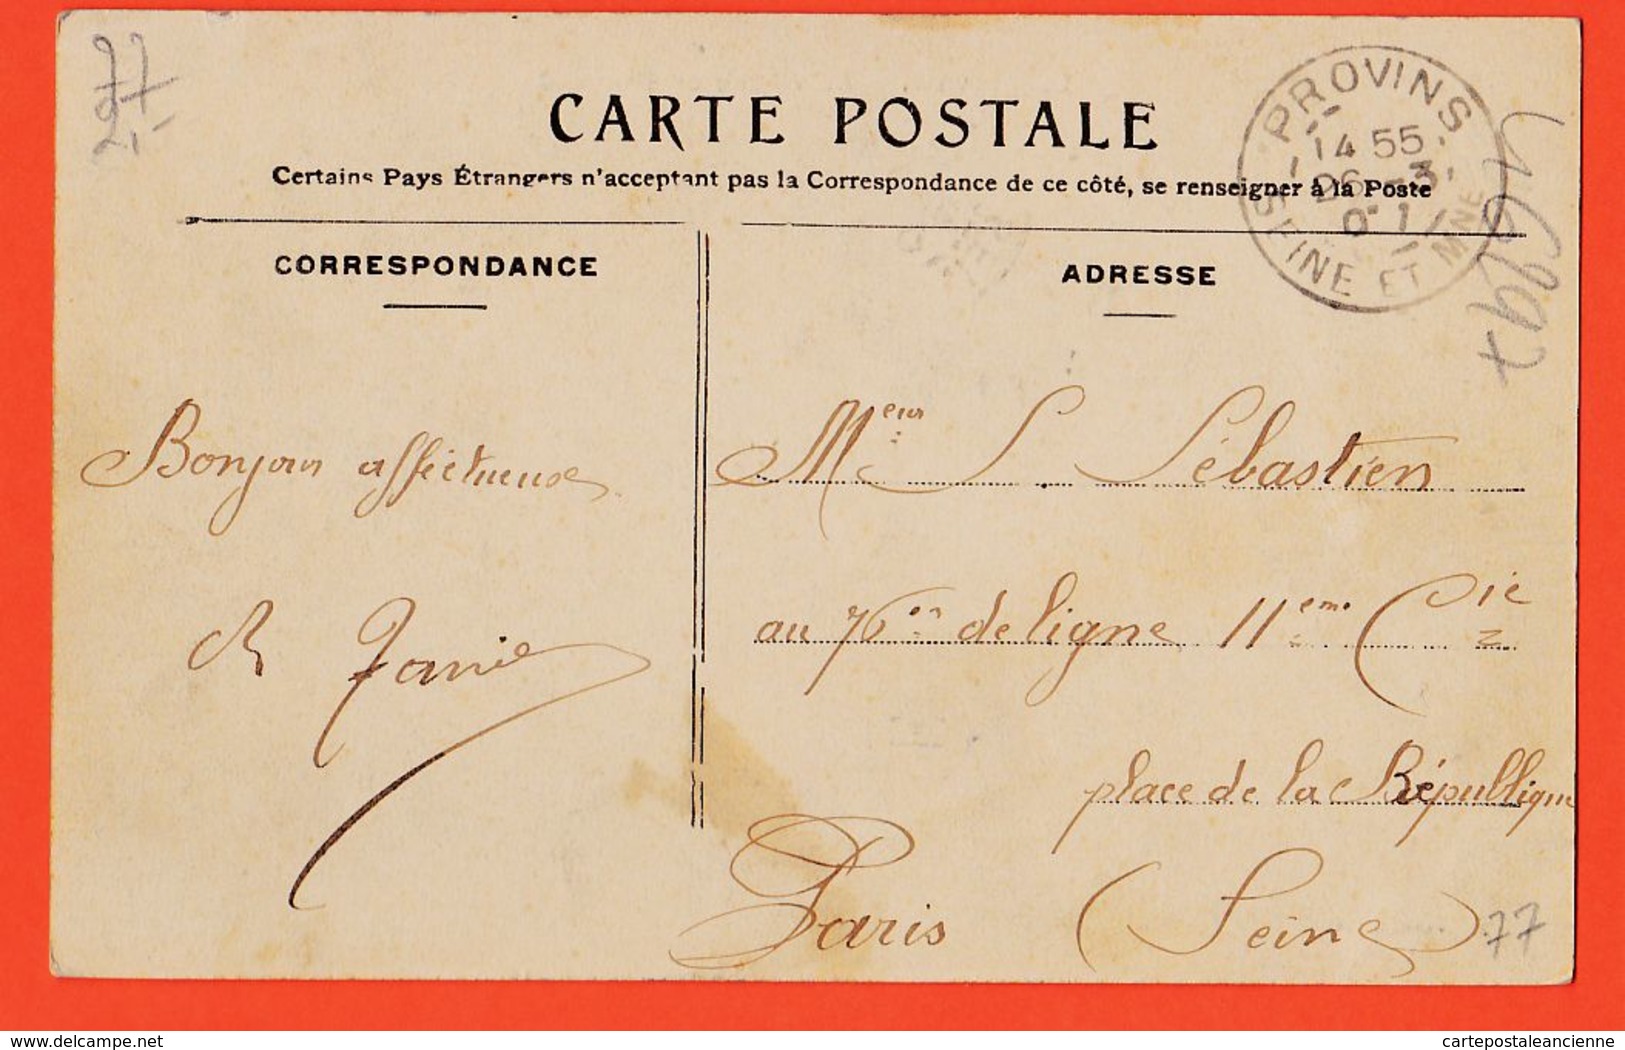 77
2,-
CARTE POSTALE
Certains Pays Étrangers n'acceptant pas la Correspondance de ce côté, se renseigner à la Poste
PROVINS
14 55
26 -3
SEINE ET MNE
CORRESPONDANCE
ADRESSE
Bonjour affectueuse
Meur L. Sébastien
au 76 de ligne 11eme Cie
place de la République
Paris (Seine)
77
delcampe.net
cartepostaleancienne